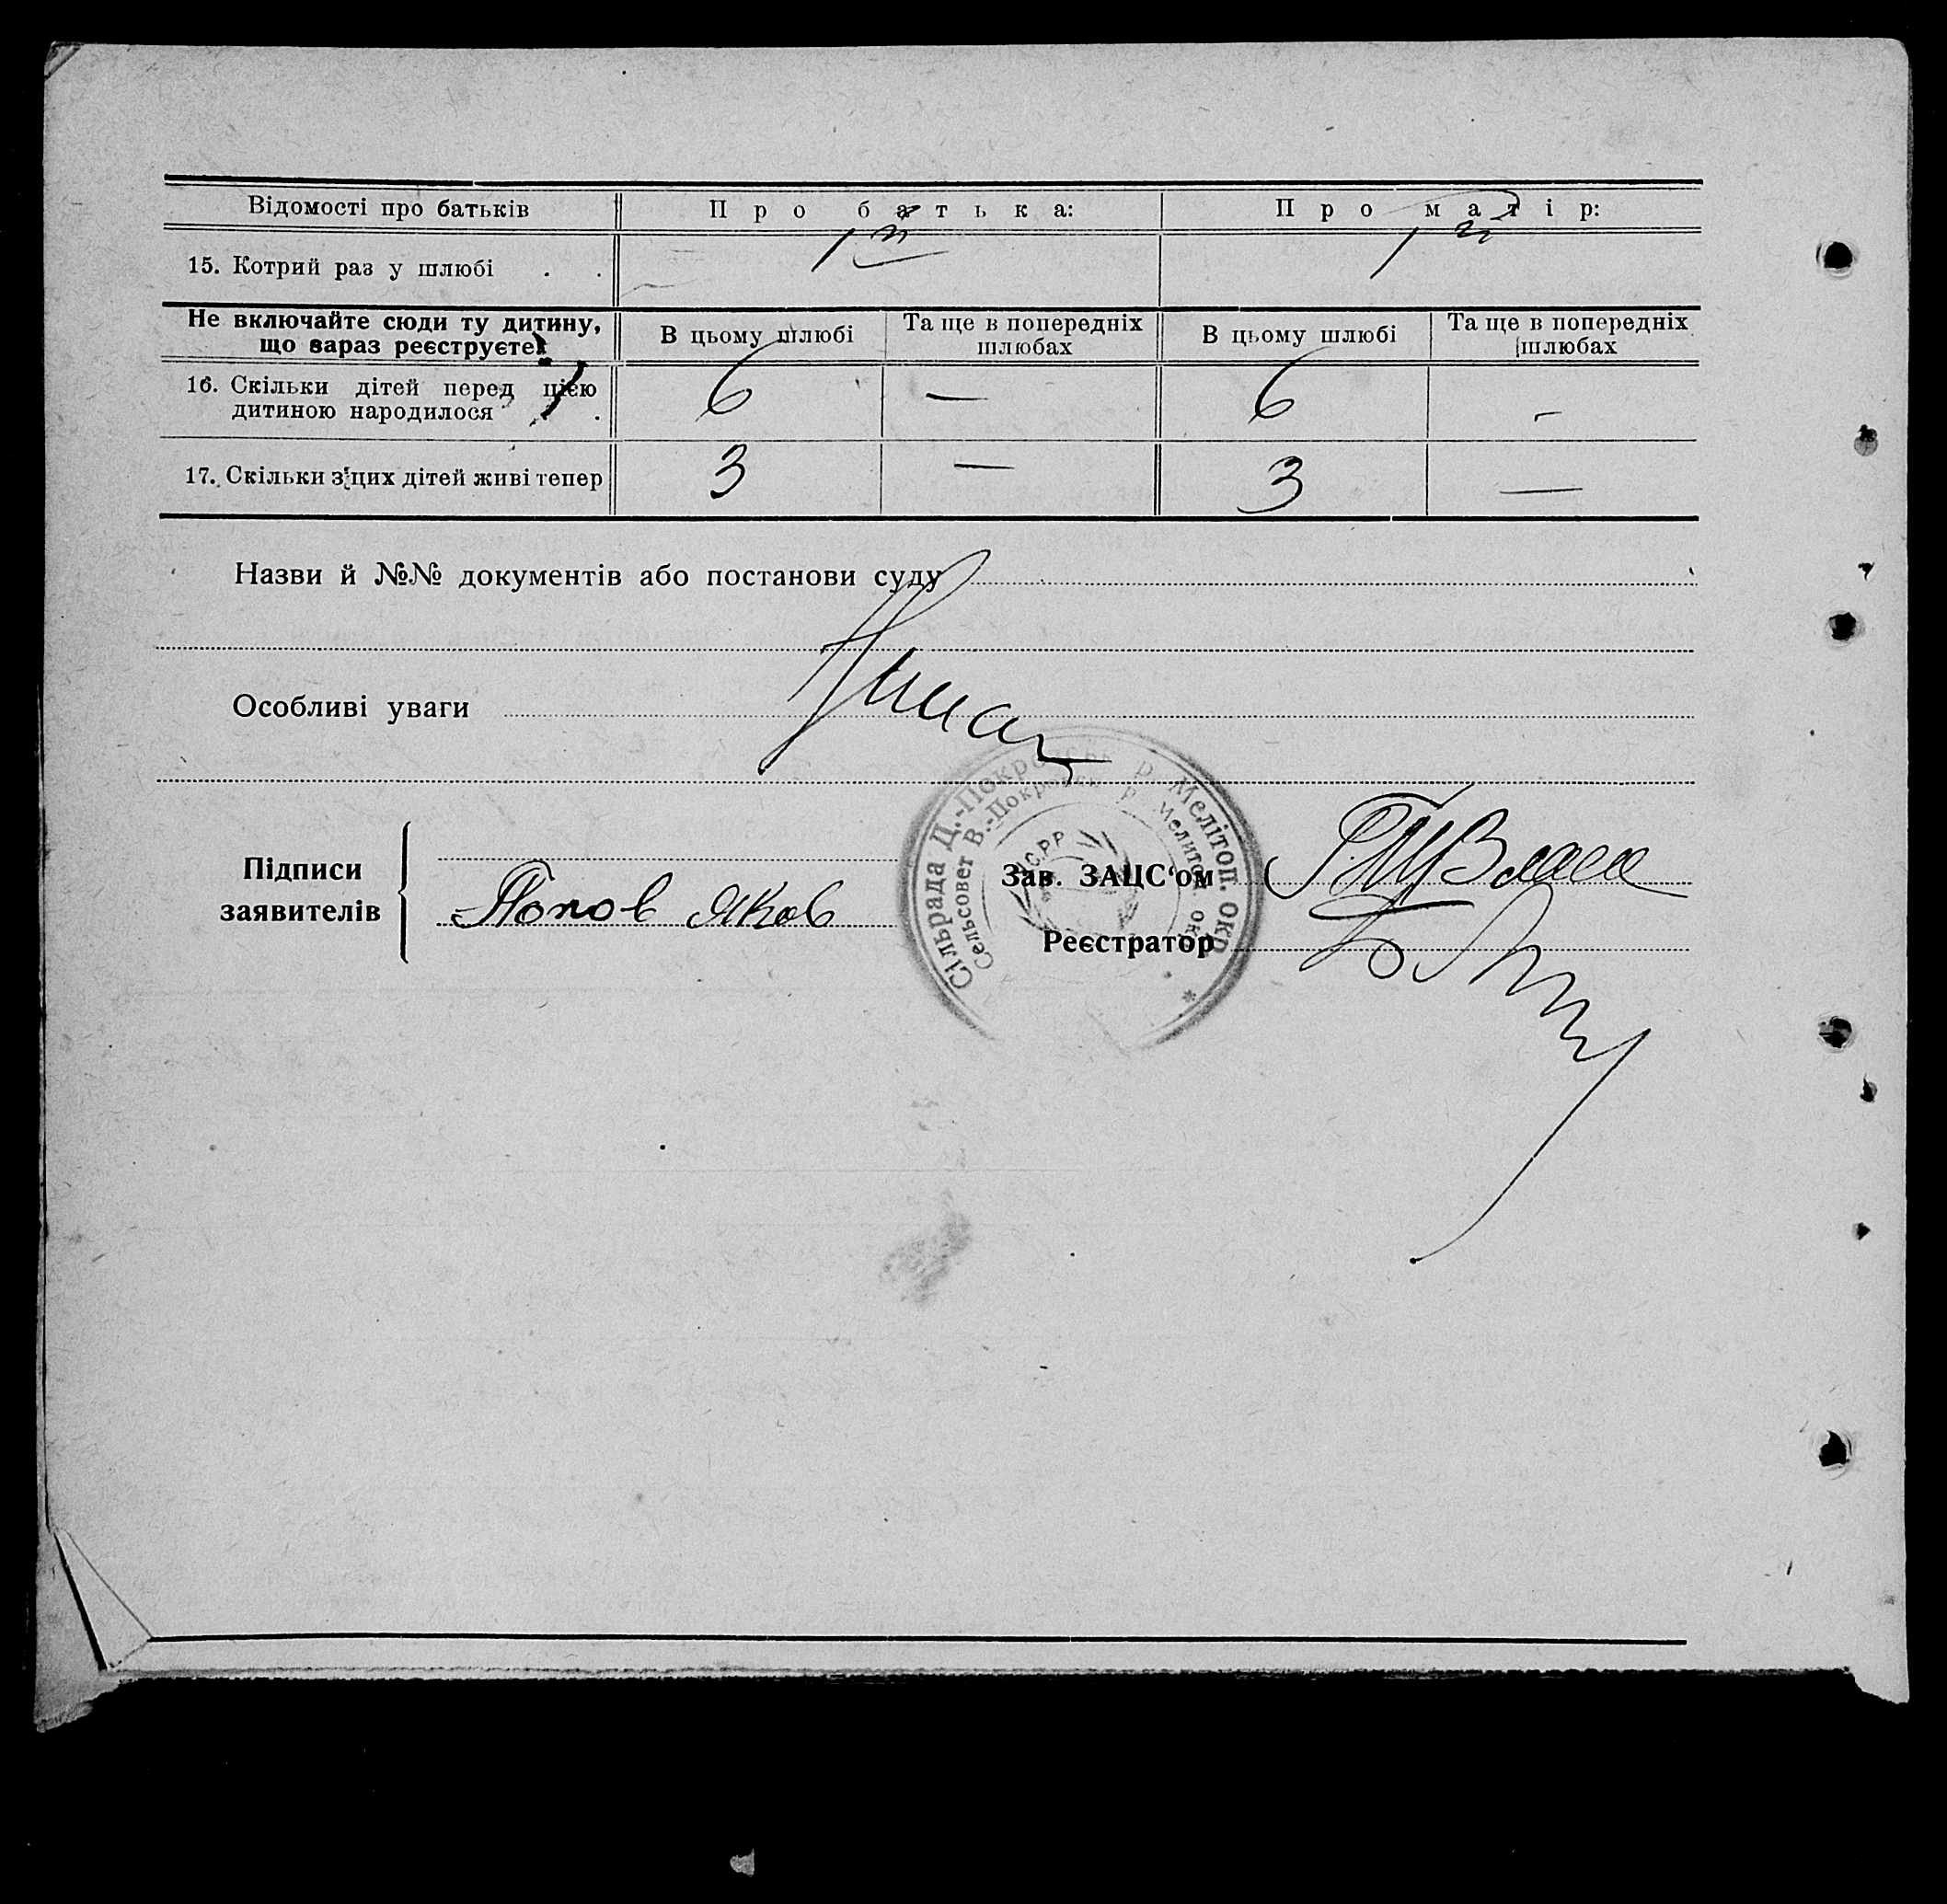 Відомості про батьків Про батька: Про матір:
15. Котрий раз у шлюбі . . 1й 1й
Не включайте сюди ту дитину, що вараз реєструєте!
В цьому шлюбі Та ще в попередніх шлюбах В цьому шлюбі Та ще в попередніх шлюбах
16. Скільки дітей перед цією
дитиною народилося . 6 — 6 -
17. Скільки з цих дітей живі тепер 3 — 3 —
Назви й №№ документів або постанови суду
Особливі уваги
Підписи
заявителів
Попов Яков
Зав. ЗАЦС‘ом
Реєстратор
Сільрада Д.-Покровськ. р. Мелітоп. окр.
Сельсовет В.-Покровск. р. Мелитоп. окр.
УСРР